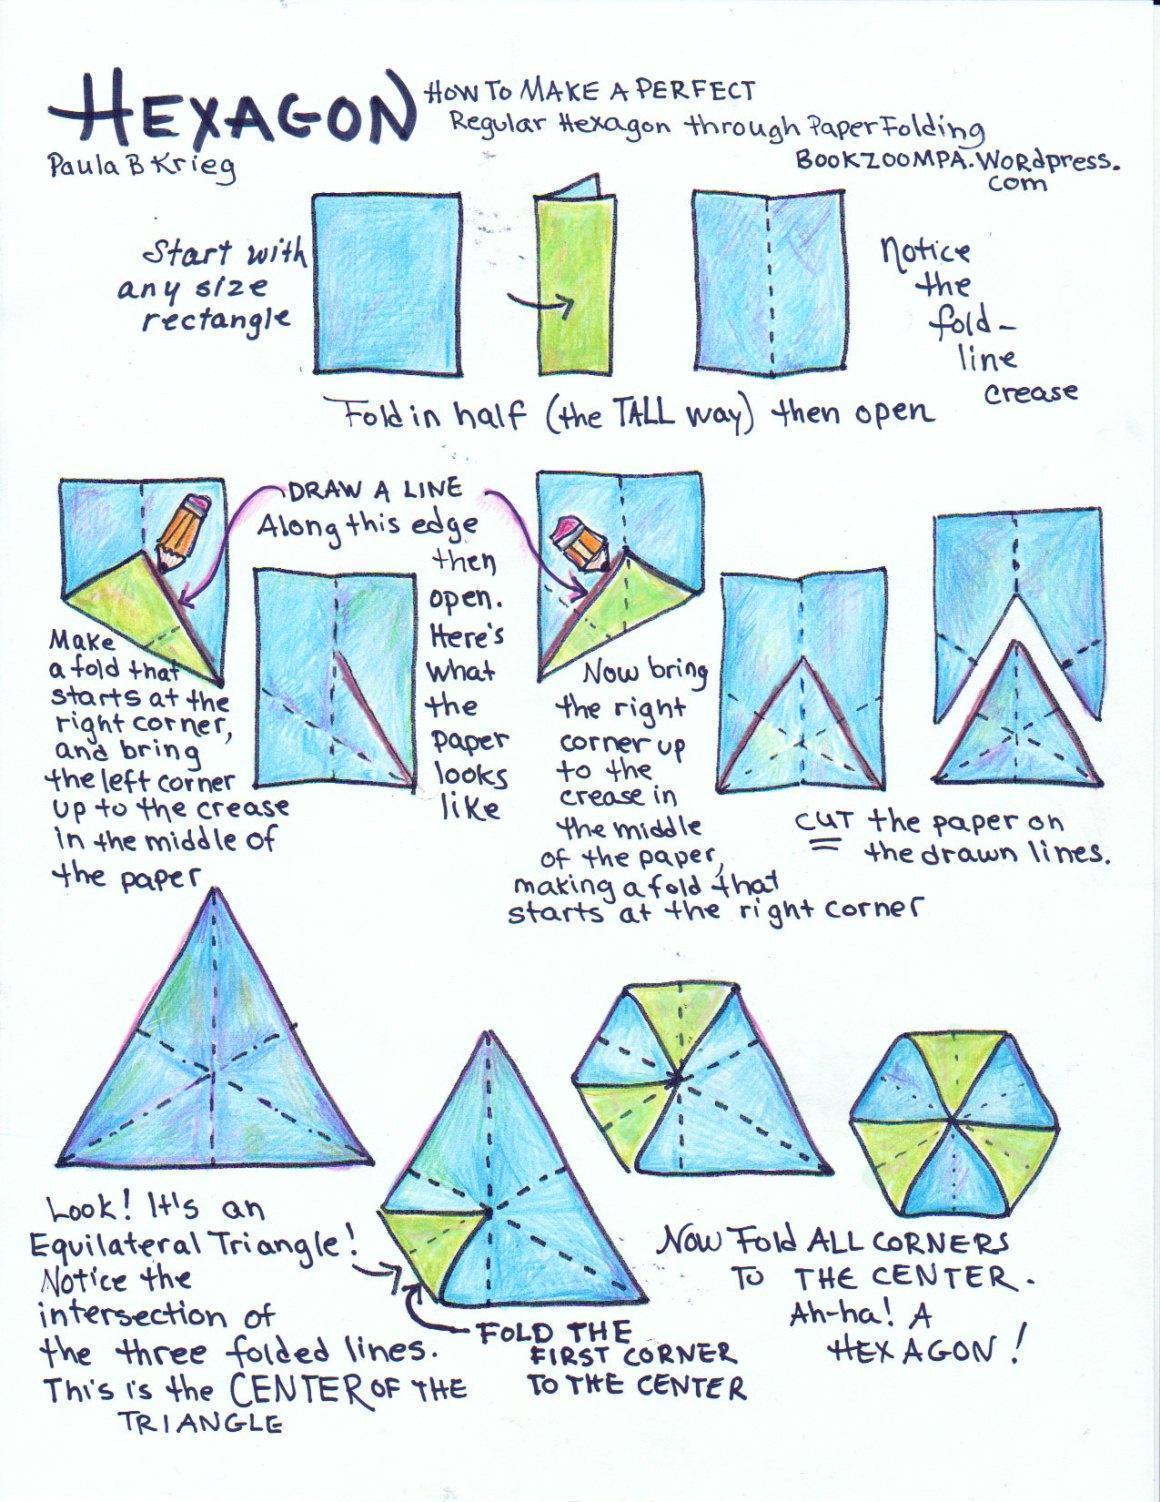 HEXAGON
HOW TO MAKE A PERFECT
Regular Hexagon through Paper Folding
Paula B Krieg
BOOKZOOMPA.WORdpress.
com
Start with
any size
rectangle
Notice
the
fold-
line
crease
Fold in half (the TALL way) then open
DRAW A LINE
Along this edge
then
open.
Here's
what
the
paper
looks
like
Make
a fold that
starts at the
right corner,
and bring
the left corner
up to the crease
in the middle of
the paper
Now bring
the right
corner up
to the
crease in
the middle
of the paper,
making a fold that
starts at the right corner
CUT the paper on
the drawn lines.
Look! It's an
Equilateral Triangle!
Notice the
intersection of
the three folded lines.
This is the CENTER OF THE
TRIANGLE
FOLD THE
FIRST CORNER
TO THE CENTER
Now Fold ALL CORNERS
TO THE CENTER.
Ah-ha! A
HEXAGON!